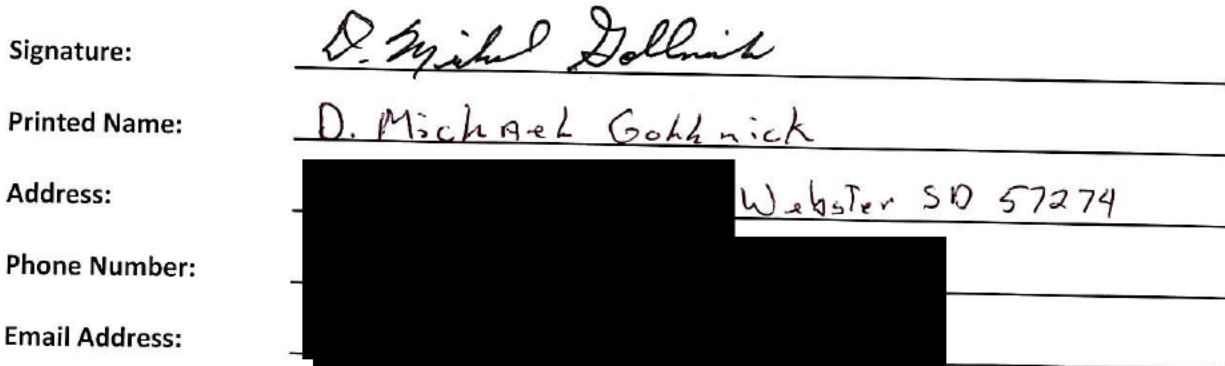 Signature: D. Michael Gollnick
Printed Name: D. Michael Gollnick
Address: Webster SD 57274
Phone Number:
Email Address: